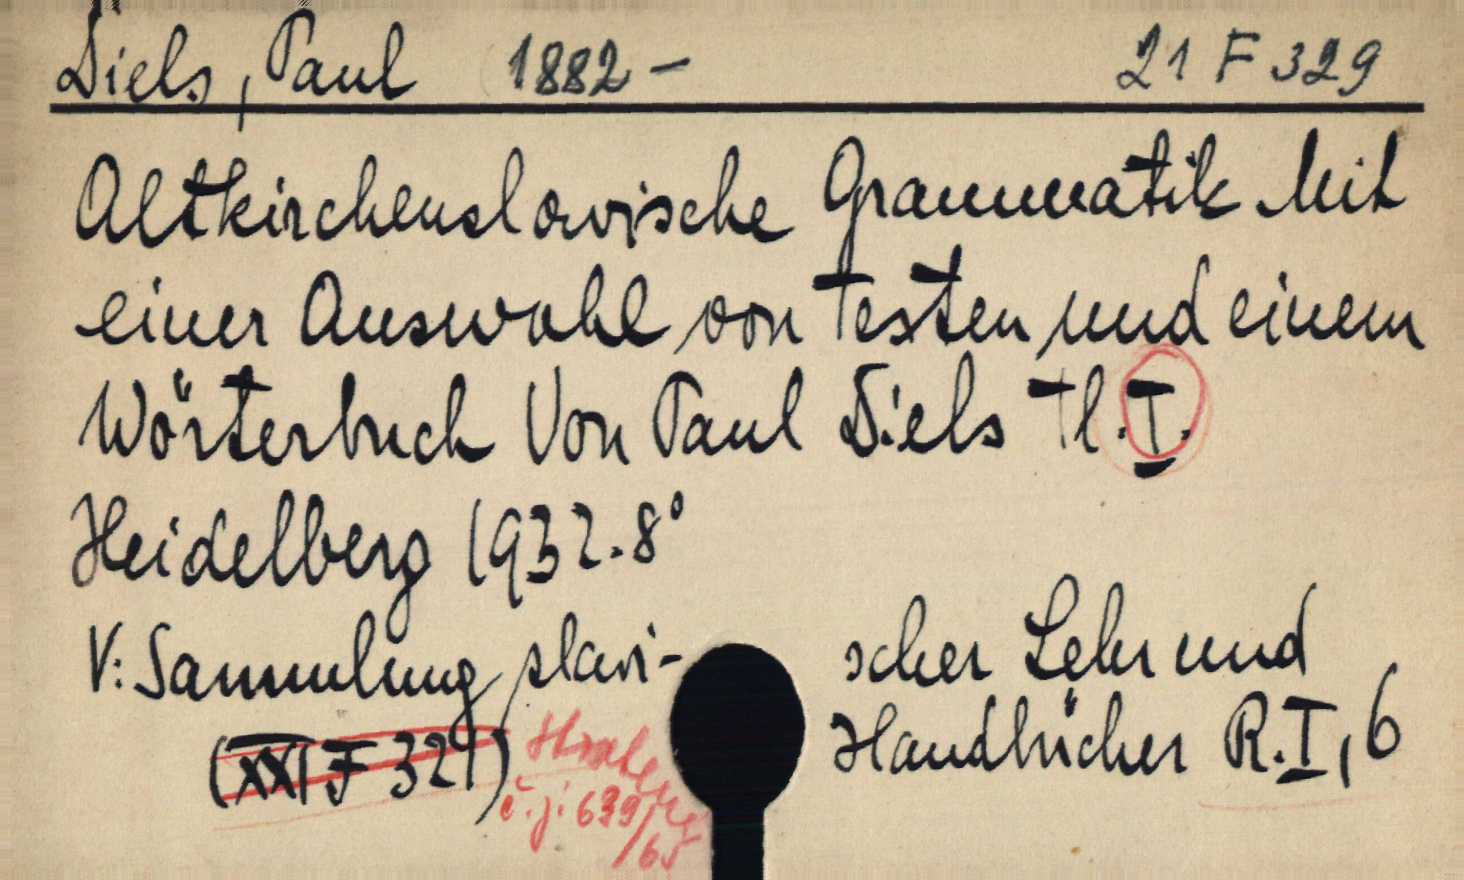 Diels, Paul 1882 - 21 F 329
Altkirchenslavische Grammatik Mit
einer Auswahl von Texten und einem
Wörterbuch Von Paul Diels Tl. I.
Heidelberg 1932. 8°
V: Sammlung slavi- scher Lehr und
Handbücher R. I, 6
(XXI F 329)
č. j. 639/65